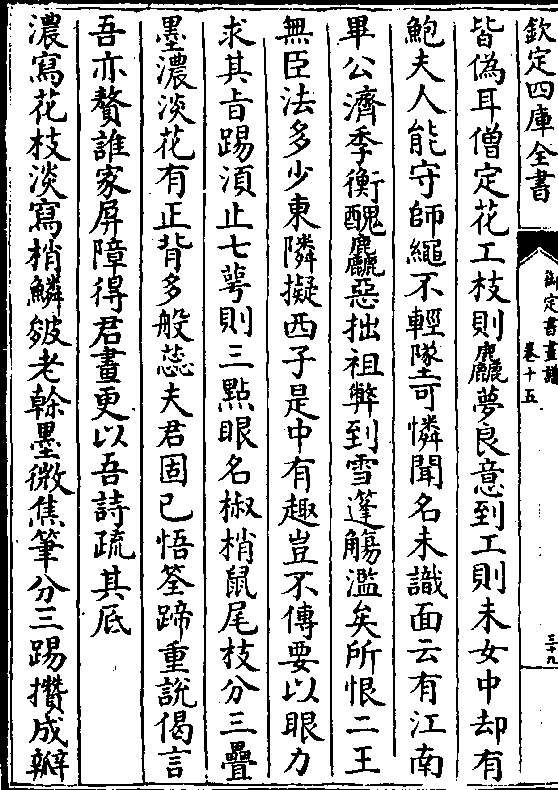 欽定四庫全書
御定書畫譜
卷十五
三十九
皆偽耳僧定花工枝則麤夢良意到工則未女中却有
鮑夫人能守師繩不輕墜可憐聞名未識面云有江南
畢公濟季衡醜麤惡拙祖弊到雪蓬觴濫矣所恨二王
無臣法多少東隣擬西子是中有趣豈不傳要以眼力
求其㫖踢湏止七萼則三點眼名椒梢鼠尾枝分三疊
墨濃淡花有正背多般蕊夫君固已悟筌蹄重說偈言
吾亦贅誰家屏障得君畫更以吾詩疏其厎
濃寫花枝淡寫梢鱗皴老榦墨微焦筆分三踢攢成瓣